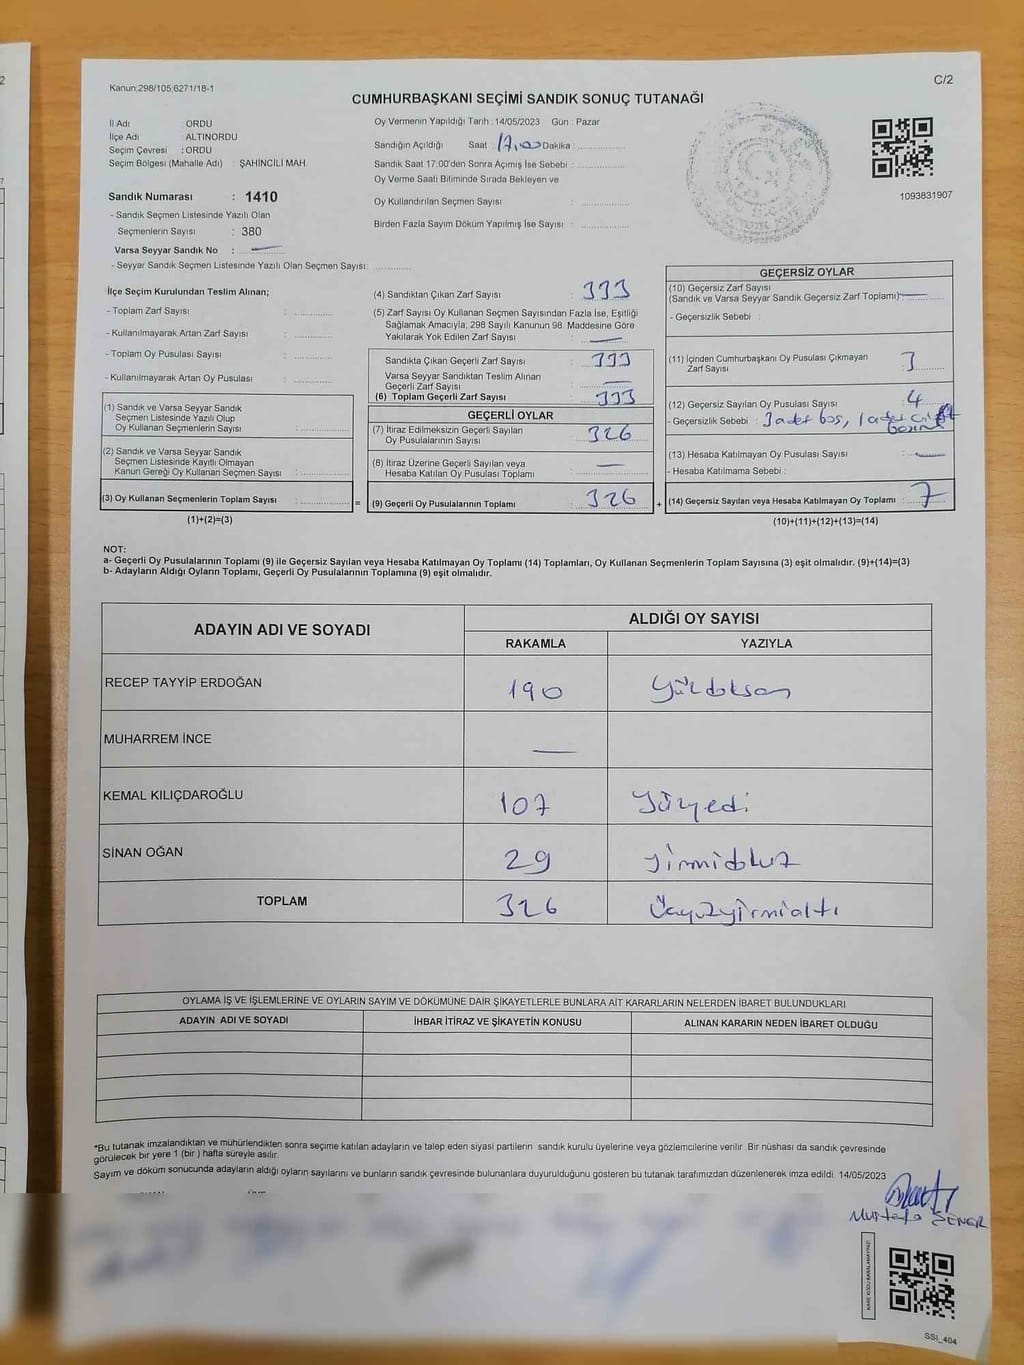 C/2
Kanun:298/105,6271/18-1
CUMHURBAŞKANI SEÇİMİ SANDIK SONUÇ TUTANAĞI
İl Adı : ORDU
İlçe Adı : ALTINORDU
Seçim Çevresi : ORDU
Seçim Bölgesi (Mahalle Adı) : ŞAHİNCİLİ MAH.
Sandık Numarası : 1410
- Sandık Seçmen Listesinde Yazılı Olan
Seçmenlerin Sayısı : 380
Varsa Seyyar Sandık No : —
- Seyyar Sandık Seçmen Listesinde Yazılı Olan Seçmen Sayısı: ............
Oy Vermenin Yapıldığı Tarih : 14/05/2023 Gün : Pazar
Sandığın Açıldığı Saat : 17,00 Dakika : ................
Sandık Saat 17:00'den Sonra Açımış İse Sebebi : ................
Oy Verme Saati Bitiminde Sırada Bekleyen ve
Oy Kullandırılan Seçmen Sayısı : ................
Birden Fazla Sayım Döküm Yapılmış İse Sayısı : ................
1093831907
İlçe Seçim Kurulundan Teslim Alınan;
- Toplam Zarf Sayısı : ............
- Kullanılmayarak Artan Zarf Sayısı : ............
- Toplam Oy Pusulası Sayısı : ............
- Kullanılmayarak Artan Oy Pusulası : ............
(1) Sandık ve Varsa Seyyar Sandık
Seçmen Listesinde Yazılı Olup
Oy Kullanan Seçmenlerin Sayısı : ............
(2) Sandık ve Varsa Seyyar Sandık
Seçmen Listesinde Kayıtlı Olmayan
Kanun Gereği Oy Kullanan Seçmen Sayısı : ............
(3) Oy Kullanan Seçmenlerin Toplam Sayısı : ............ =
(1)+(2)=(3)
(4) Sandıktan Çıkan Zarf Sayısı : 333
(5) Zarf Sayısı Oy Kullanan Seçmen Sayısından Fazla İse, Eşitliği
Sağlamak Amacıyla, 298 Sayılı Kanunun 98. Maddesine Göre
Yakılarak Yok Edilen Zarf Sayısı : —
Sandıkta Çıkan Geçerli Zarf Sayısı : 333
Varsa Seyyar Sandıktan Teslim Alınan
Geçerli Zarf Sayısı : —
(6) Toplam Geçerli Zarf Sayısı : 333
GEÇERLİ OYLAR
(7) İtiraz Edilmeksizin Geçerli Sayılan
Oy Pusulalarının Sayısı : 326
(8) İtiraz Üzerine Geçerli Sayılan veya
Hesaba Katılan Oy Pusulası Toplamı : —
(9) Geçerli Oy Pusulalarının Toplamı : 326 +
GEÇERSİZ OYLAR
(10) Geçersiz Zarf Sayısı
(Sandık ve Varsa Seyyar Sandık Geçersiz Zarf Toplamı) : —
- Geçersizlik Sebebi :
(11) İçinden Cumhurbaşkanı Oy Pusulası Çıkmayan
Zarf Sayısı : 3
(12) Geçersiz Sayılan Oy Pusulası Sayısı : 4
- Geçersizlik Sebebi : 3 adet boş, 1 adet
(13) Hesaba Katılmayan Oy Pusulası Sayısı : —
- Hesaba Katılmama Sebebi :
(14) Geçersiz Sayılan veya Hesaba Katılmayan Oy Toplamı : 7
(10)+(11)+(12)+(13)=(14)
NOT:
a- Geçerli Oy Pusulalarının Toplamı (9) ile Geçersiz Sayılan veya Hesaba Katılmayan Oy Toplamı (14) Toplamları, Oy Kullanan Seçmenlerin Toplam Sayısına (3) eşit olmalıdır. (9)+(14)=(3)
b- Adayların Aldığı Oyların Toplamı, Geçerli Oy Pusulalarının Toplamına (9) eşit olmalıdır.
ADAYIN ADI VE SOYADI ALDIĞI OY SAYISI
RAKAMLA YAZIYLA
RECEP TAYYİP ERDOĞAN 190 Yüzdoksan
MUHARREM İNCE —
KEMAL KILIÇDAROĞLU 107 Yüzyedi
SİNAN OĞAN 29 Yirmidokuz
TOPLAM 326 Üçyüzyirmialtı
OYLAMA İŞ VE İŞLEMLERİNE VE OYLARIN SAYIM VE DÖKÜMÜNE DAİR ŞİKAYETLERLE BUNLARA AİT KARARLARIN NELERDEN İBARET BULUNDUKLARI
ADAYIN ADI VE SOYADI İHBAR İTİRAZ VE ŞİKAYETİN KONUSU ALINAN KARARIN NEDEN İBARET OLDUĞU
*Bu tutanak imzalandıktan ve mühürlendikten sonra seçime katılan adayların ve talep eden siyasi partilerin sandık kurulu üyelerine veya gözlemcilerine verilir. Bir nüshası da sandık çevresinde
görülecek bir yere 1 (bir ) hafta süreyle asılır.
Sayım ve döküm sonucunda adayların aldığı oyların sayılarını ve bunların sandık çevresinde bulunanlara duyurulduğunu gösteren bu tutanak tarafımızdan düzenlenerek imza edildi. 14/05/2023
Mustafa ŞENER
SSI_404